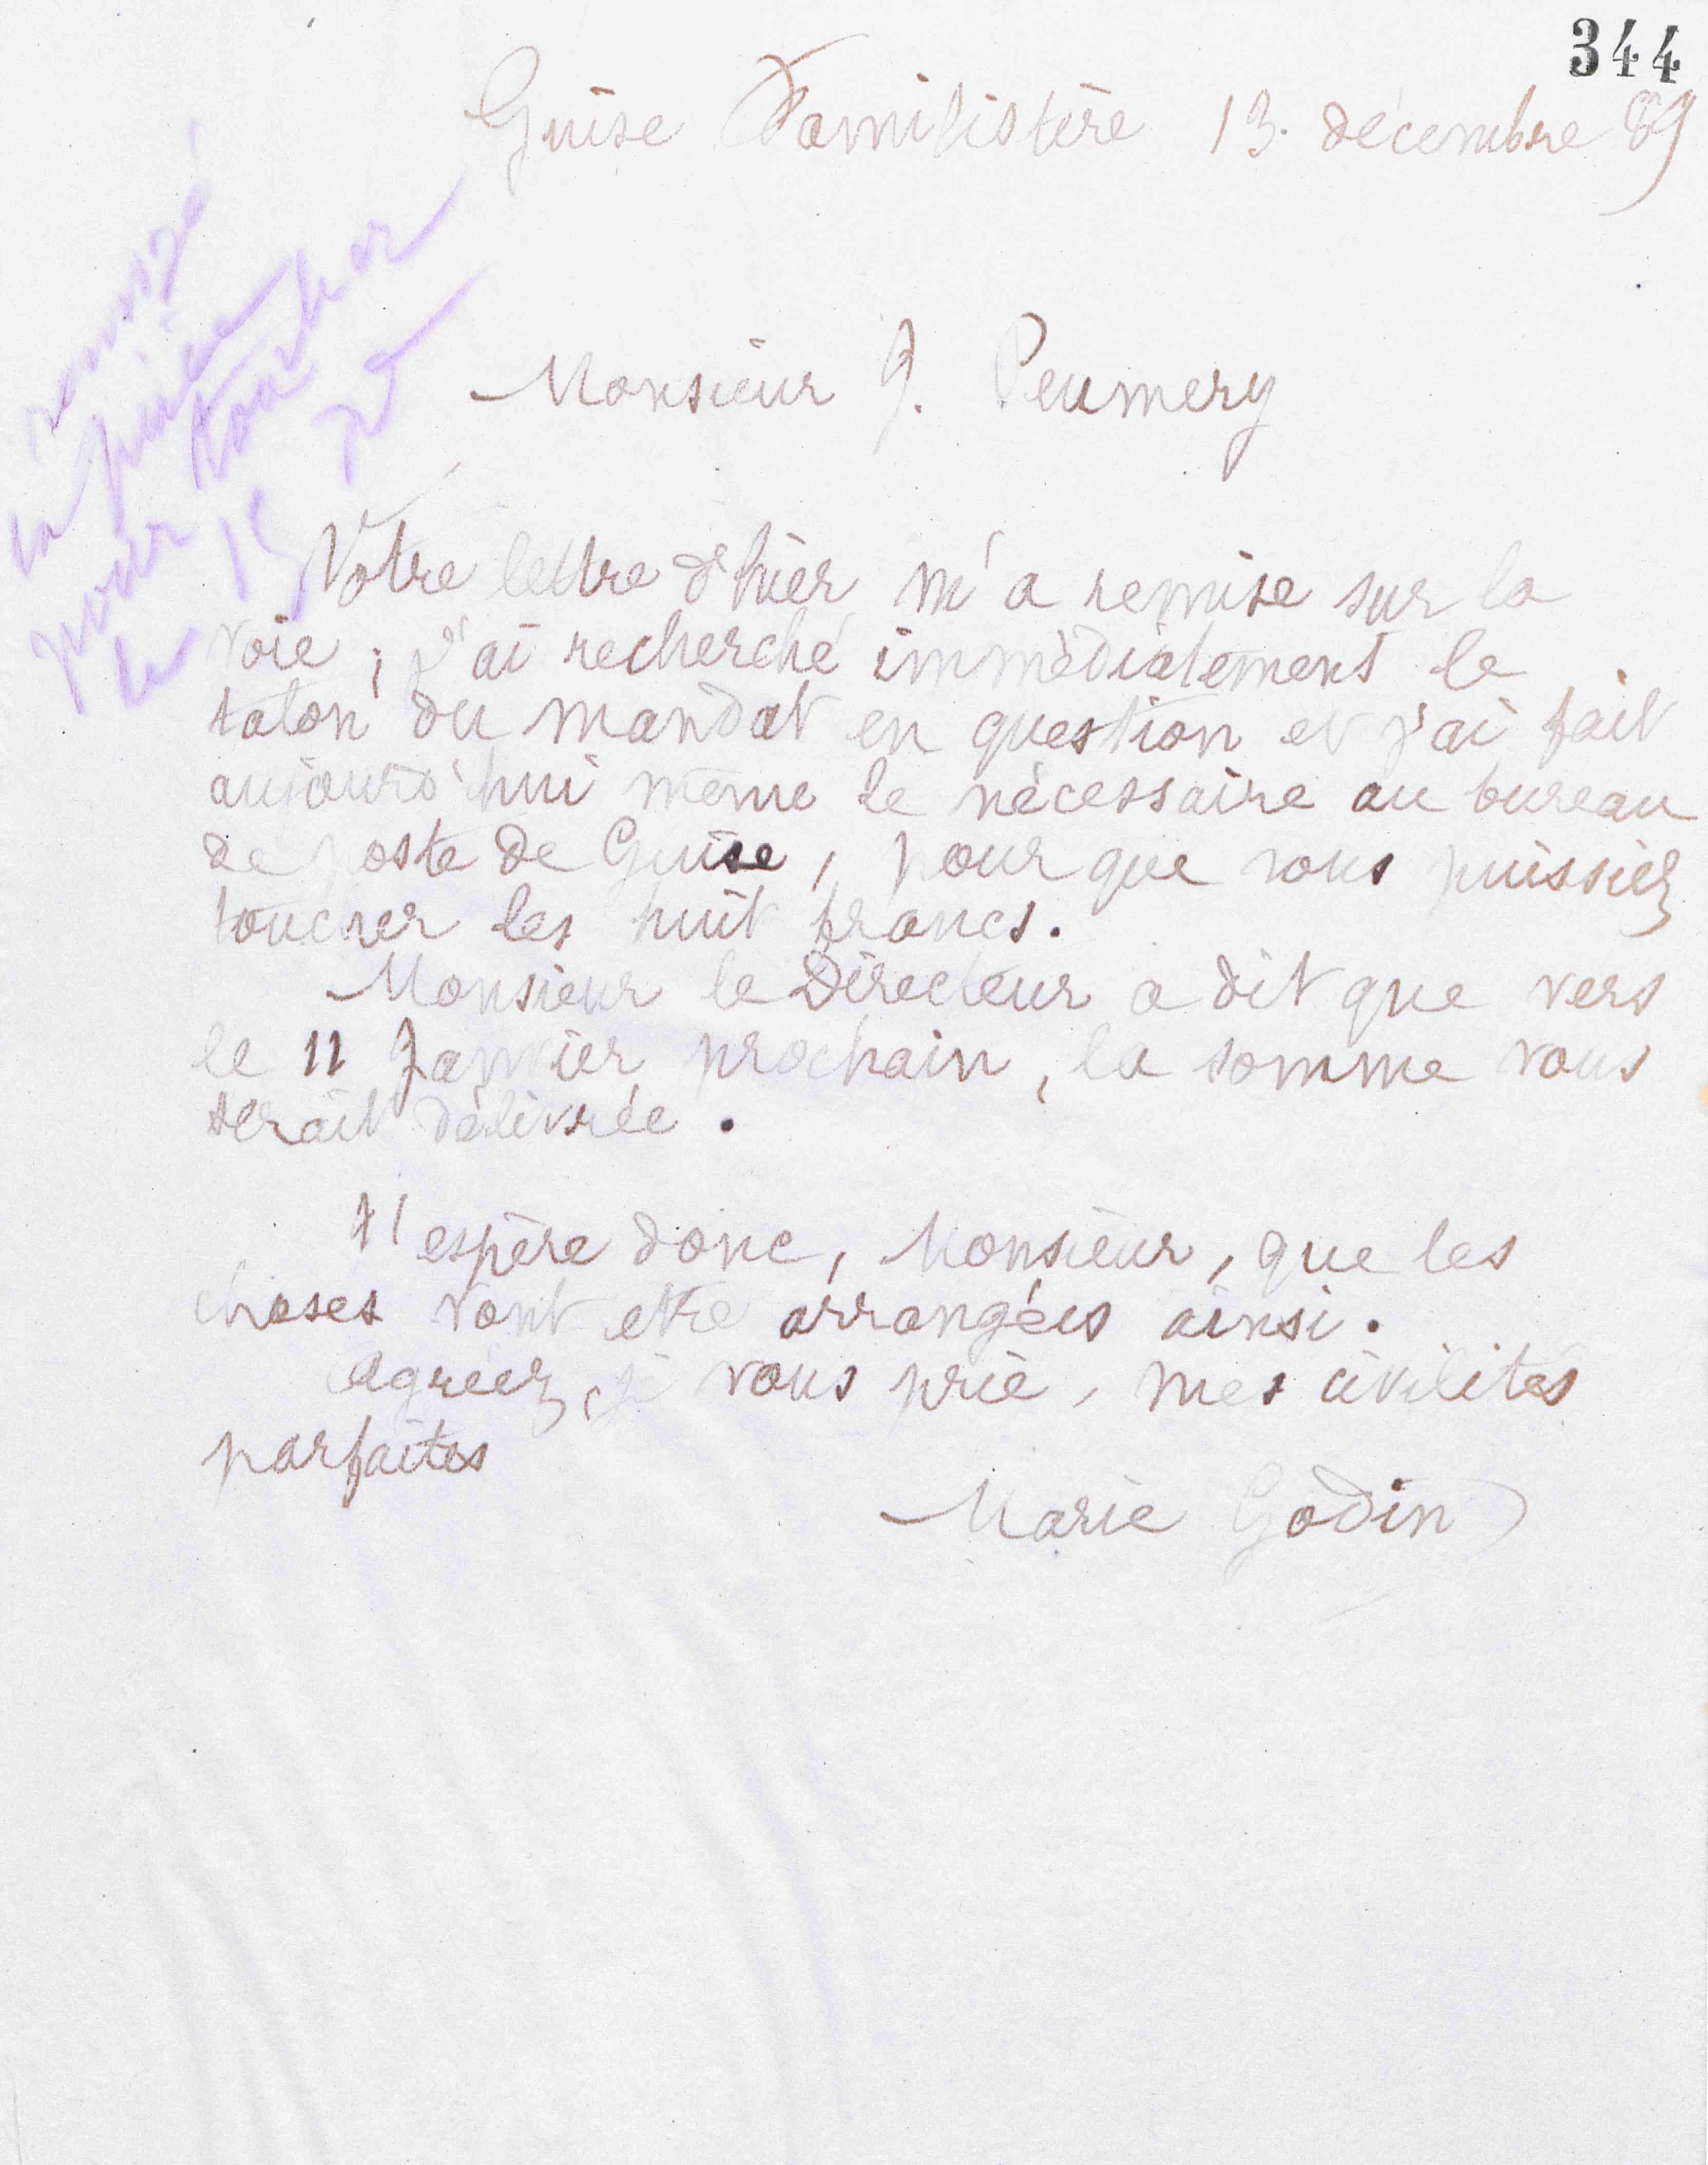 344
Guise Familistère 13. décembre 89
Monsieur J. Peumery
Votre lettre d'hier m'a remise sur la
voie ; j'ai recherché immédiatement le
talon du mandat en question et j'ai fait
aujourd'hui même le nécessaire au bureau
de poste de Guise, pour que vous puissiez
toucher les huit francs.
Monsieur le Directeur a dit que vers
le 11 Janvier prochain, la somme vous
serait délivrée.
J'espère donc, Monsieur, que les
choses vont etre arrangées ainsi.
Agréez, je vous prie, mes civilités
parfaites
Marie Godin
la pièce
pour toucher
le 15